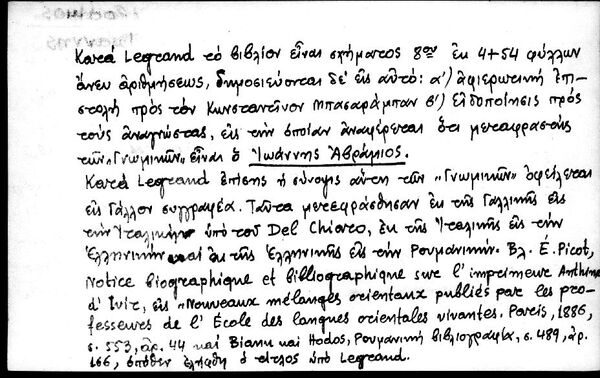 Κατά Legrand τό βιβλίον εἶναι σχήματος 8ου ἐκ 4+54 φύλλων
ἄνευ ἀριθμήσεως, δημοσιεύονται δέ εἰς αὐτό: α') ἀφιερωτική ἐπι-
στολή πρός τόν Κωνσταντῖνον Μπασαράμπαν β') Εἰδοποίησις πρός
τούς ἀναγνώστας, εἰς τήν ὁποίαν ἀναφέρεται ὅτι μεταφραστής
τῶν „Γνωμικῶν" εἶναι ὁ Ἰωάννης Ἀβράμιος.
Κατά Legrand ἐπίσης ἡ σύνοψις αὕτη τῶν „Γνωμικῶν" ὀφείλεται
εἰς Γάλλον συγγραφέα. Ταῦτα μετεφράσθησαν ἐκ τῆς Γαλλικῆς εἰς
τήν Ἰταλικήν ὑπό τοῦ Del Chiaro, ἐκ τῆς Ἰταλικῆς εἰς τήν
Ἑλληνικήν καί ἐκ τῆς Ἑλληνικῆς εἰς τήν Ρουμανικήν. Βλ. É. Picot,
Notice biographique et bibliographique sur l'imprimeur Anthime
d'Ivir, εἰς „Nouveaux mélanges orientaux publiés par les pro-
fesseurs de l'École des langues orientales vivantes. Paris, 1886,
σ. 553, ἀρ. 44 καί Bianu καί Hodos, Ρουμανική βιβλιογραφία, σ. 489, ἀρ.
166, ὁπόθεν ἐλήφθη ὁ τίτλος ὑπό Legrand.